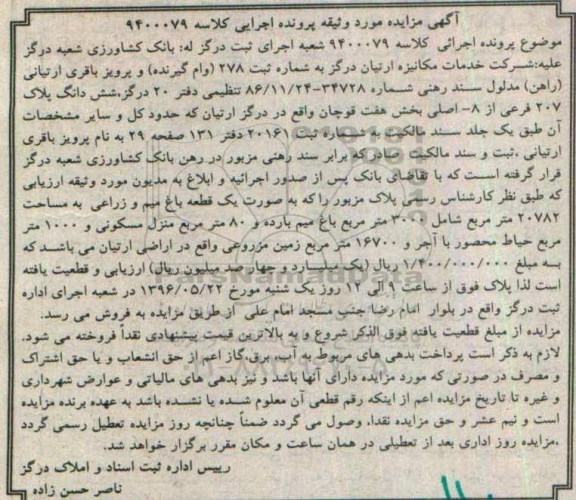 آگهی مزایده مورد وثیقه پرونده اجرایی کلاسه ۹۴۰۰۰۷۹
موضوع پرونده اجرائی کلاسه ۹۴۰۰۰۷۹ شعبه اجرای ثبت درگز له: بانک کشاورزی شعبه درگز
علیه:شرکت خدمات مکانیزه ارتیان درگز به شماره ثبت ۲۷۸ (وام گیرنده) و پرویز باقری ارتیانی
(راهن) مدلول سند رهنی شماره ۳۴۷۲۸-۸۶/۱۱/۲۴ تنظیمی دفتر ۲۰ درگز،شش دانگ پلاک
۲۰۷ فرعی از ۸- اصلی بخش هفت قوچان واقع در درگز ارتیان که حدود کل و سایر مشخصات
آن طبق یک جلد سند مالکیت با شماره ثبت ۲۰۱۶۱ دفتر ۱۳۱ صفحه ۲۹ به نام پرویز باقری
ارتیانی ،ثبت و سند مالکیت صادر که برابر سند رهنی مزبور در رهن بانک کشاورزی شعبه درگز
قرار گرفته است که با تقاضای بانک پس از صدور اجرائیه و ابلاغ به مدیون مورد وثیقه ارزیابی
که طبق نظر کارشناس رسمی پلاک مزبور را که به صورت یک قطعه باغ میم و زراعی به مساحت
۲۰۷۸۲ متر مربع شامل ۳۰۰۰ متر مربع باغ میم بارده و ۸۰ متر مربع منزل مسکونی و ۱۰۰۰ متر
مربع حیاط محصور با آجر و ۱۶۷۰۰ متر مربع زمین مزروعی واقع در اراضی ارتیان می باشد که
به مبلغ ۱/۴۰۰/۰۰۰/۰۰۰ ریال (یک میلیارد و چهار صد میلیون ریال) ارزیابی و قطعیت یافته
است لذا پلاک فوق از ساعت ۹ الی ۱۲ روز یک شنبه مورخ ۱۳۹۶/۰۵/۲۲ در شعبه اجرای اداره
ثبت درگز واقع در بلوار امام رضا جنب مسجد امام علی از طریق مزایده به فروش می رسد.
مزایده از مبلغ قطعیت یافته فوق الذکر شروع و به بالاترین قیمت پیشنهادی نقداً فروخته می شود.
لازم به ذکر است پرداخت بدهی های مربوط به آب، برق،گاز اعم از حق انشعاب و یا حق اشتراک
و مصرف در صورتی که مورد مزایده دارای آنها باشد و نیز بدهی های مالیاتی و عوارض شهرداری
و غیره تا تاریخ مزایده اعم از اینکه رقم قطعی آن معلوم شده یا نشده باشد به عهده برنده مزایده
است و نیم عشر و حق مزایده نقدا، وصول می گردد ضمناً چنانچه روز مزایده تعطیل رسمی گردد
،مزایده روز اداری بعد از تعطیلی در همان ساعت و مکان مقرر برگزار خواهد شد.
رییس اداره ثبت اسناد و املاک درگز
ناصر حسن زاده